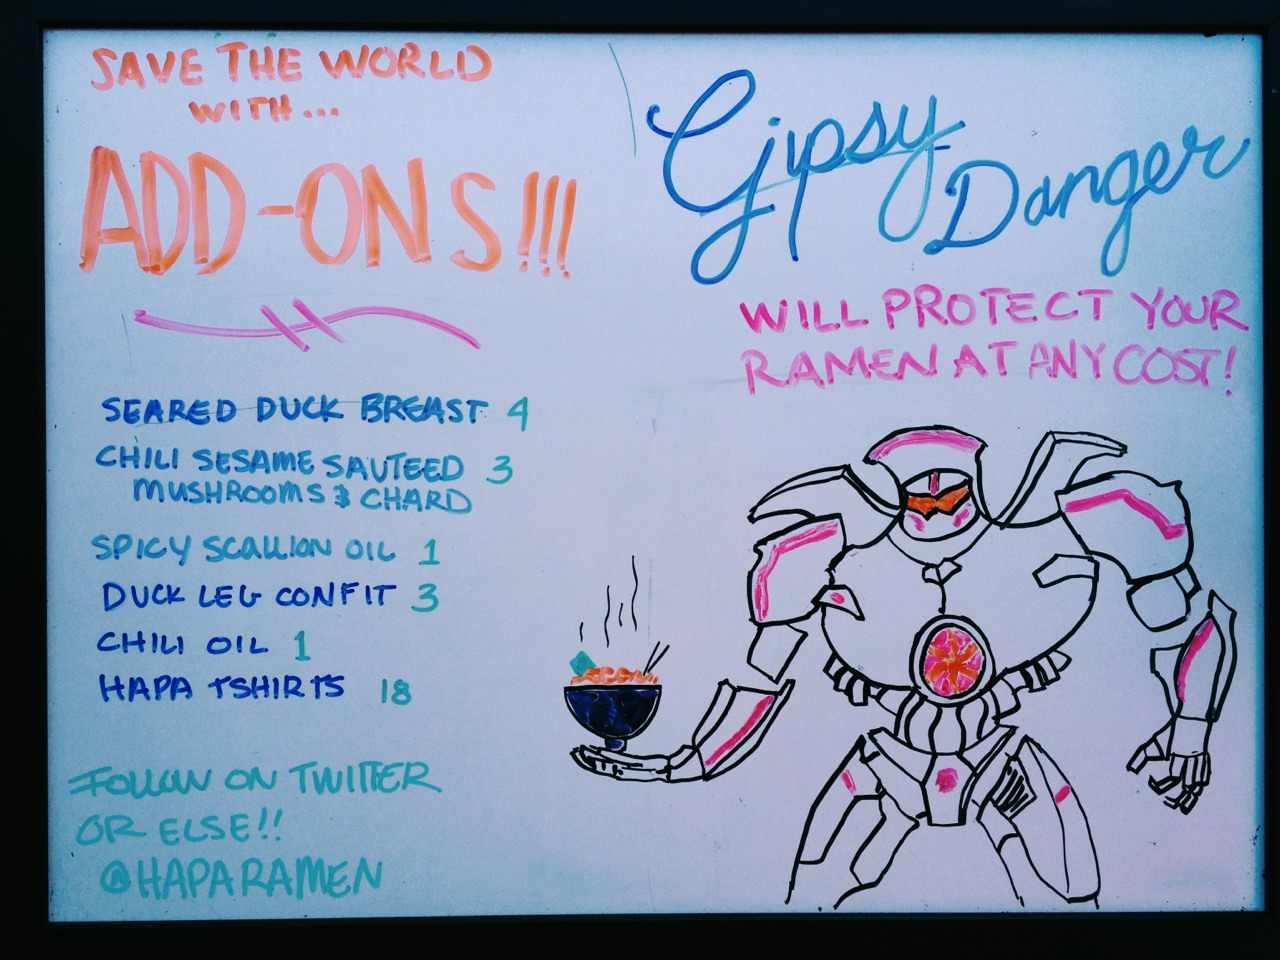 SAVE THE WORLD
WITH...
ADD-ONS!!!
SEARED DUCK BREAST 4
CHILI SESAME SAUTEED 3
MUSHROOMS & CHARD
SPICY SCALLION OIL 1
DUCK LEG CONFIT 3
CHILI OIL 1
HAPA TSHIRTS 18
FOLLOW ON TWITTER
OR ELSE!!
@HAPARAMEN
Gipsy
Danger
WILL PROTECT YOUR
RAMEN AT ANY COST!